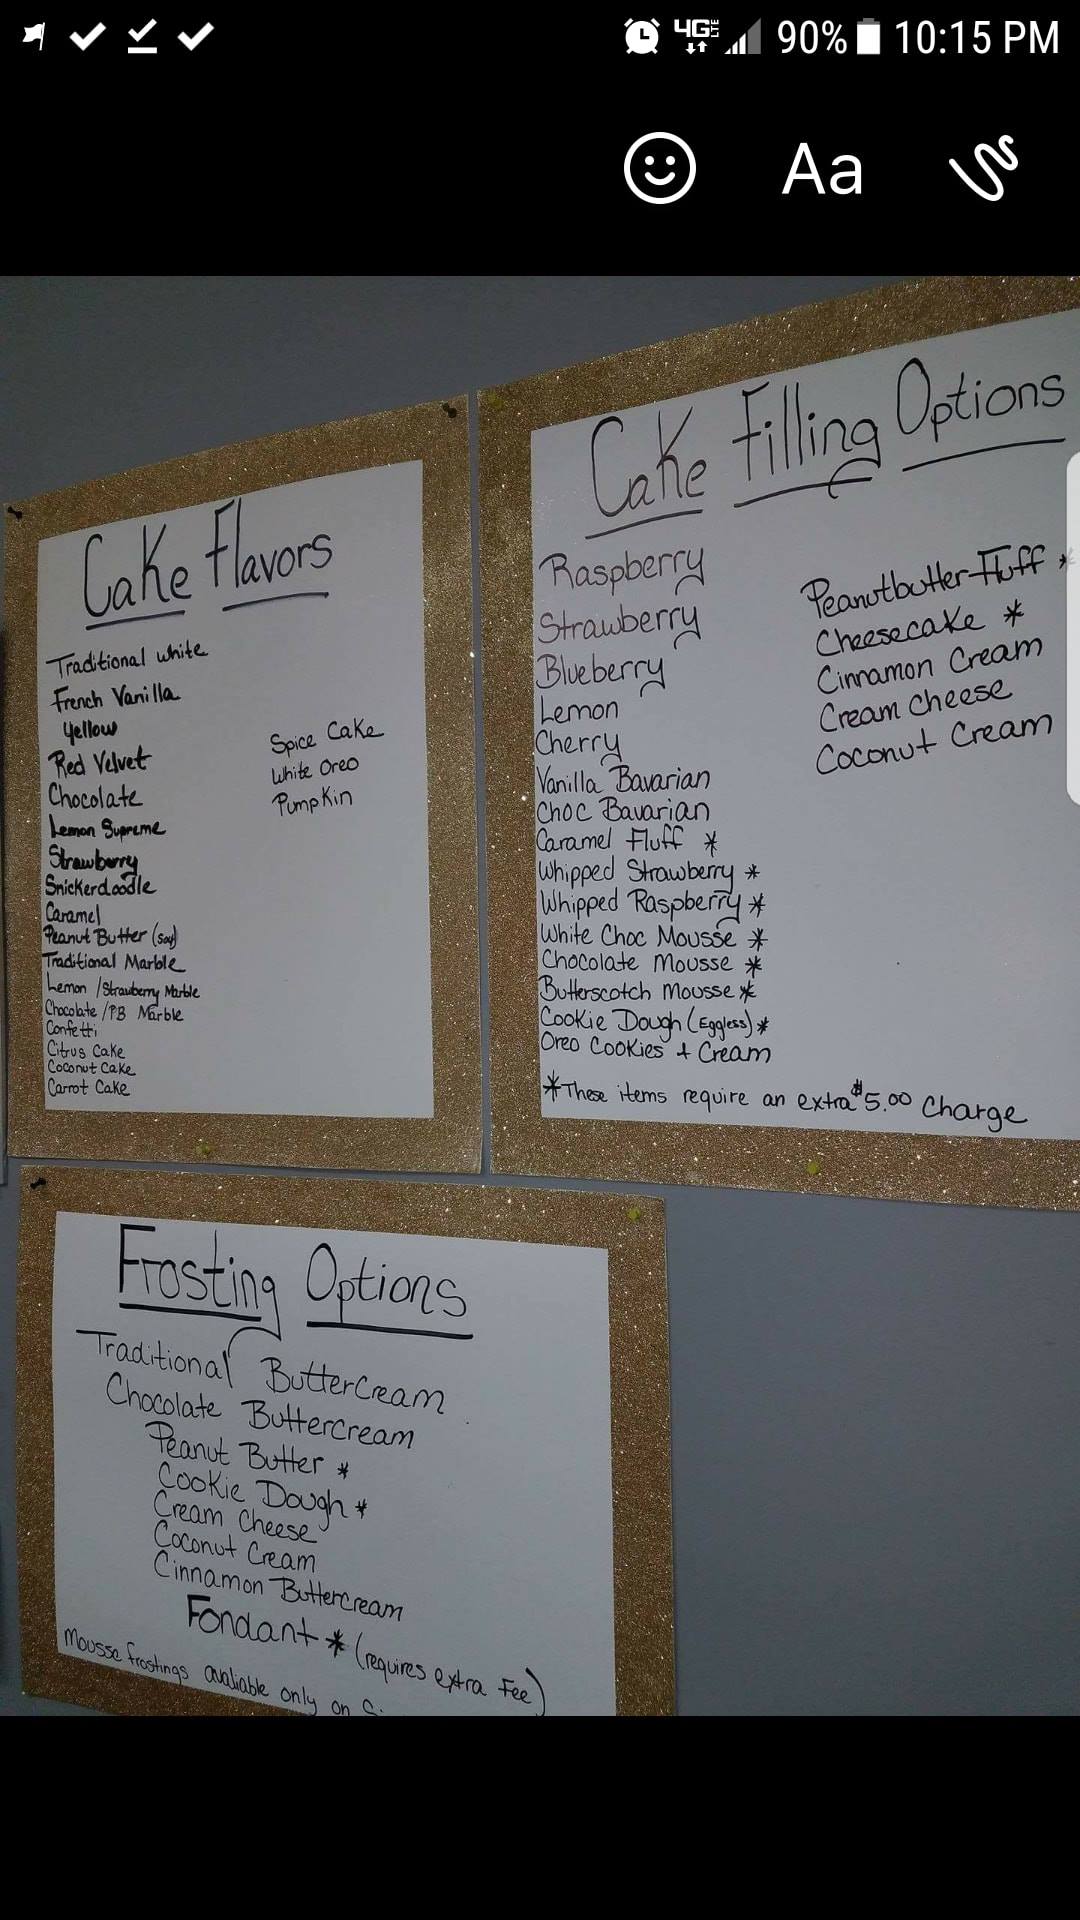 90% 10:15 PM
Aa
Cake Flavors
Traditional White
French Vanilla
Yellow
Red Velvet
Chocolate
Lemon Supreme
Strawberry
Snickerdoodle
Caramel
Peanut Butter (Soy)
Traditional Marble
Lemon /Strawberry Marble
Chocolate /PB Marble
Confetti
Citrus Cake
Coconut Cake
Carrot Cake
Spice Cake
White Oreo
Pumpkin
Cake Filling Options
Raspberry
Strawberry
Blueberry
Lemon
Cherry
Vanilla Bavarian
Choc Bavarian
Caramel Fluff *
Whipped Strawberry *
Whipped Raspberry *
White Choc Mousse *
Chocolate Mousse *
Butterscotch Mousse *
Cookie Dough (Eggless) *
Oreo Cookies + Cream
Peanutbutter Fluff *
Cheesecake *
Cinnamon Cream
Cream Cheese
Coconut Cream
*These items require an extra $5.00 Charge
Frosting Options
Traditional Buttercream
Chocolate Buttercream
Peanut Butter *
Cookie Dough *
Cream Cheese
Coconut Cream
Cinnamon Buttercream
Fondant * (requires extra Fee)
Mousse frostings avaliable only on